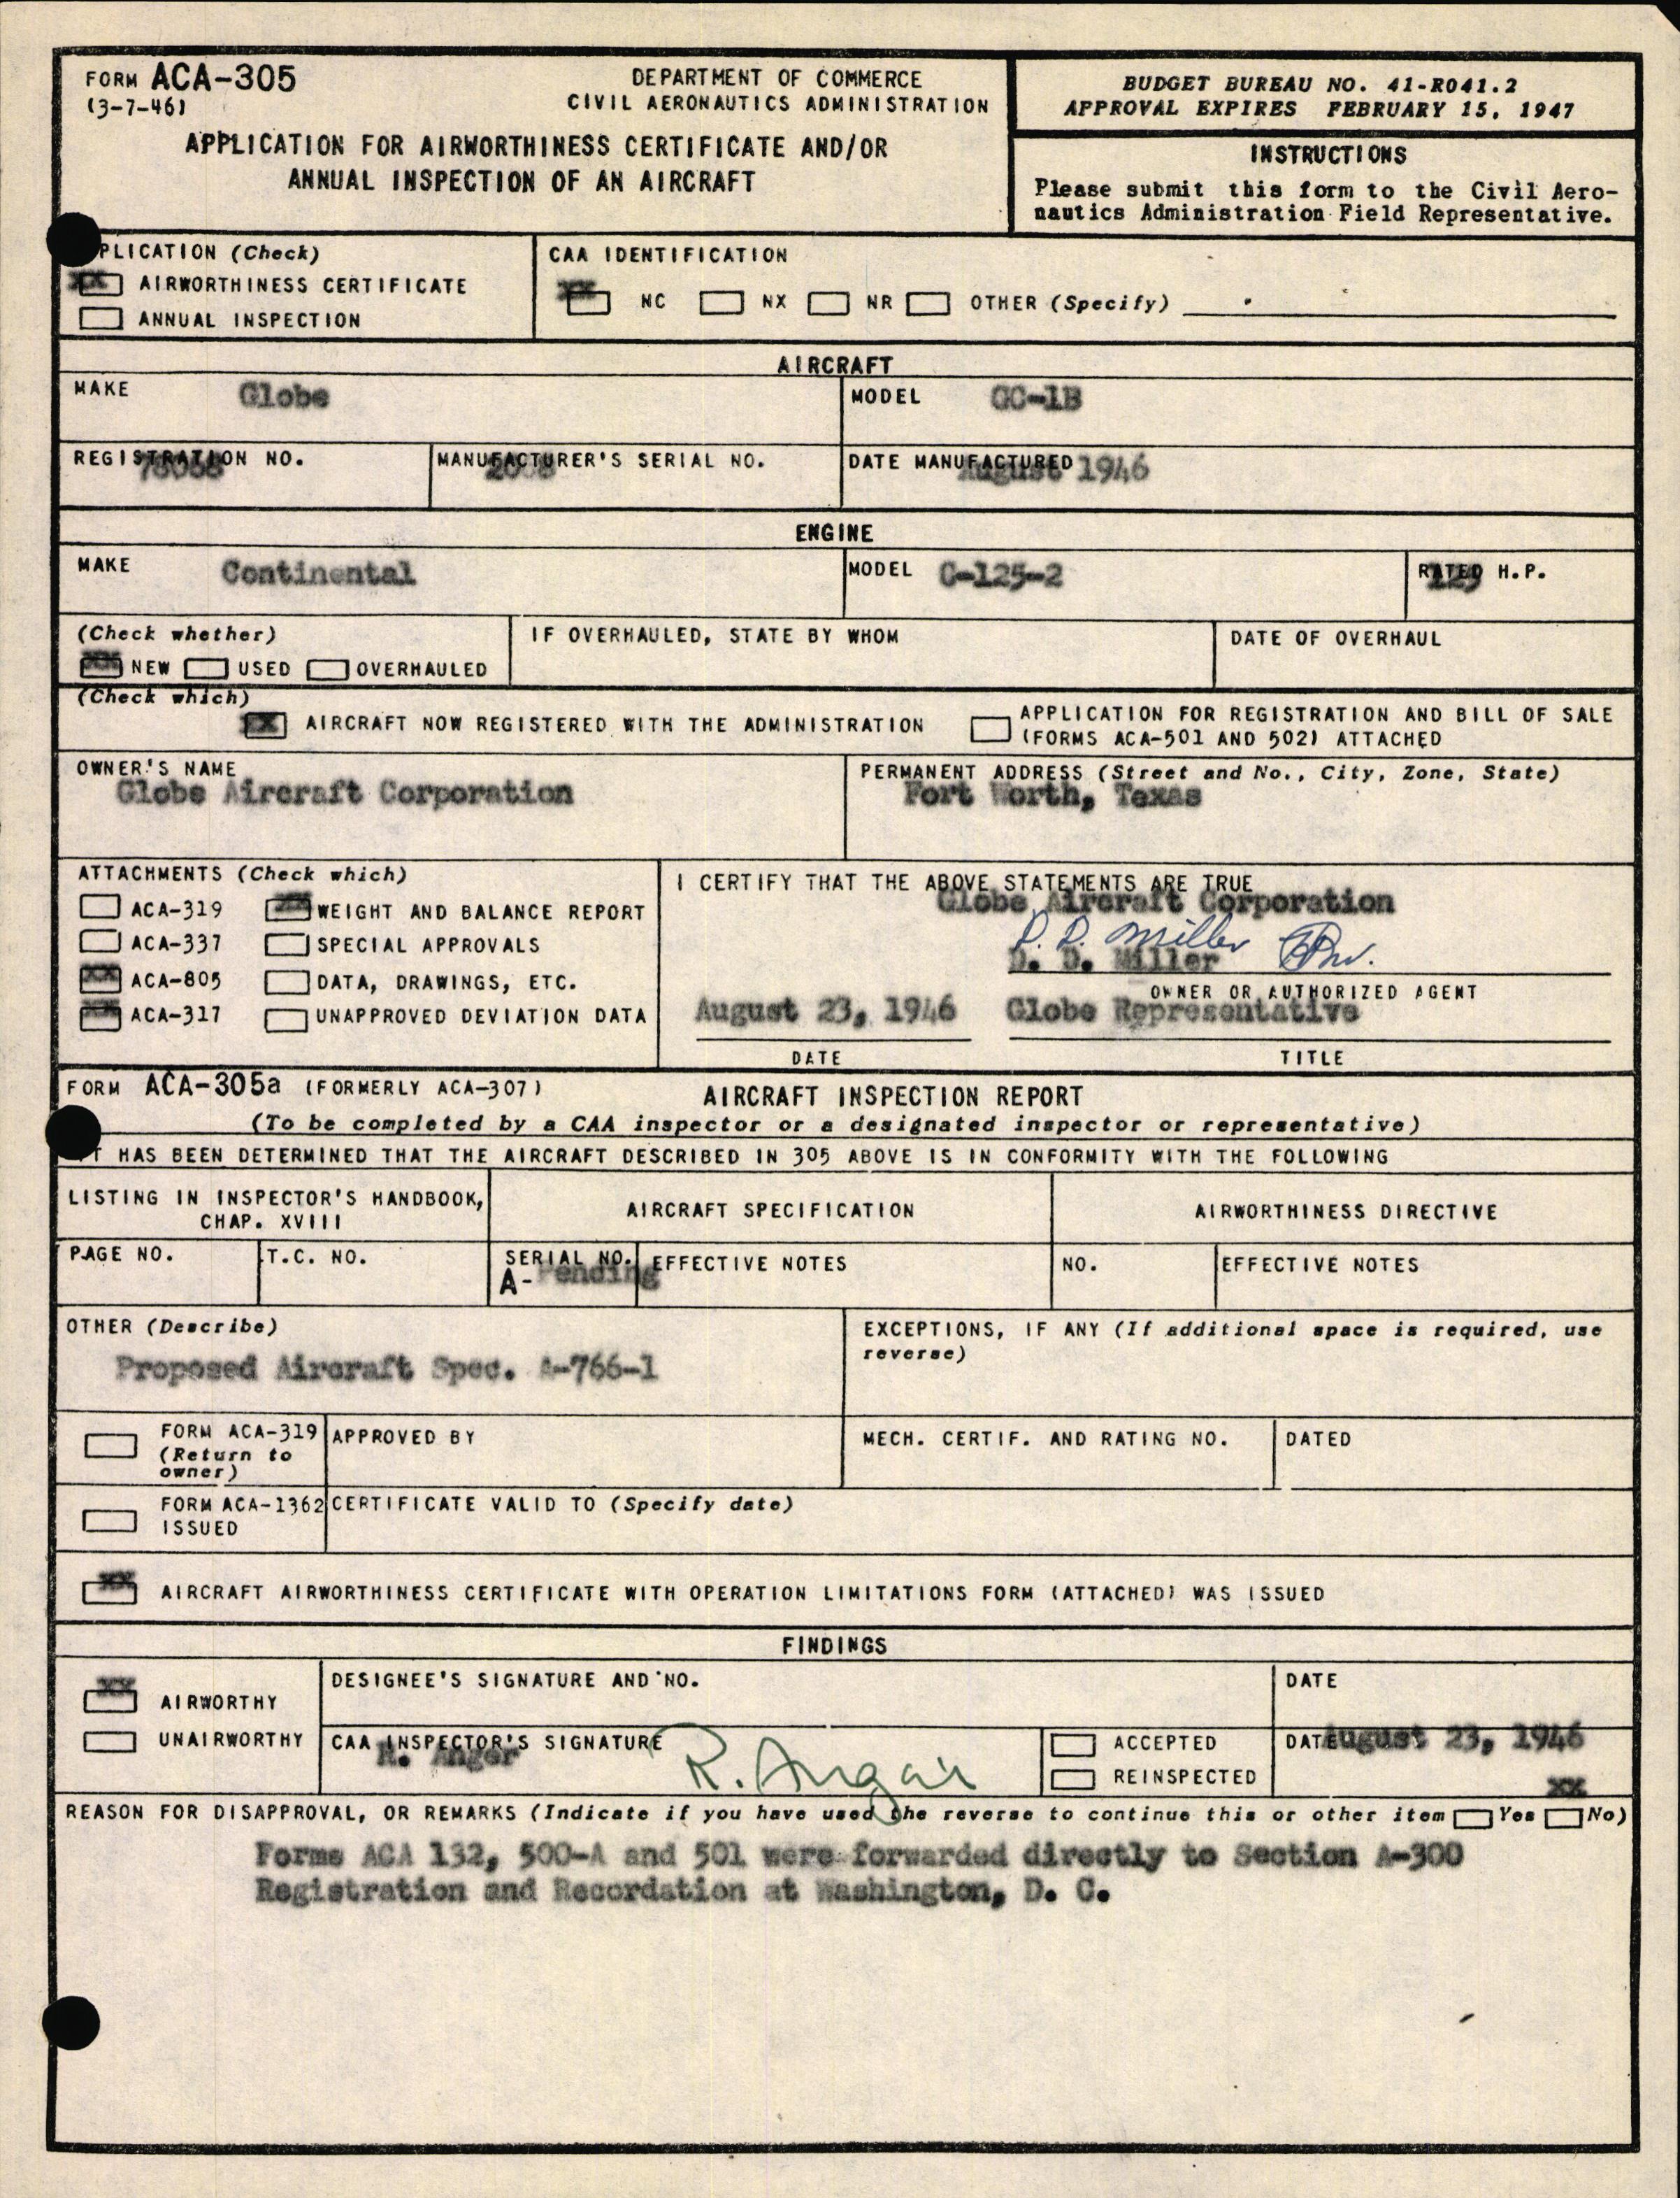 FORM ACA-305
(3-7-46)
DEPARTMENT OF COMMERCE
CIVIL AERONAUTICS ADMINISTRATION
APPLICATION FOR AIRWORTHINESS CERTIFICATE AND/OR
ANNUAL INSPECTION OF AN AIRCRAFT
BUDGET BUREAU NO. 41-R041.2
APPROVAL EXPIRES FEBRUARY 15, 1947
INSTRUCTIONS
Please submit this form to the Civil Aero-
nautics Administration Field Representative.
PLICATION (Check)
XX AIRWORTHINESS CERTIFICATE
ANNUAL INSPECTION
CAA IDENTIFICATION
XX NC NX NR OTHER (Specify)
AIRCRAFT
MAKE Globe
MODEL GC-1B
REGISTRATION NO.
MANUFACTURER'S SERIAL NO.
DATE MANUFACTURED August 1946
ENGINE
MAKE Continental
MODEL C-125-2
RATED H.P. 125
(Check whether)
XX NEW USED OVERHAULED
IF OVERHAULED, STATE BY WHOM
DATE OF OVERHAUL
(Check which)
XX AIRCRAFT NOW REGISTERED WITH THE ADMINISTRATION
APPLICATION FOR REGISTRATION AND BILL OF SALE
(FORMS ACA-501 AND 502) ATTACHED
OWNER'S NAME
Globe Aircraft Corporation
PERMANENT ADDRESS (Street and No., City, Zone, State)
Fort Worth, Texas
ATTACHMENTS (Check which)
ACA-319 XX WEIGHT AND BALANCE REPORT
ACA-337 SPECIAL APPROVALS
XX ACA-805 DATA, DRAWINGS, ETC.
XX ACA-317 UNAPPROVED DEVIATION DATA
I CERTIFY THAT THE ABOVE STATEMENTS ARE TRUE
Globe Aircraft Corporation
D. D. Miller
D. D. Miller
OWNER OR AUTHORIZED AGENT
August 23, 1946 Globe Representative
DATE TITLE
FORM ACA-305a (FORMERLY ACA-307) AIRCRAFT INSPECTION REPORT
(To be completed by a CAA inspector or a designated inspector or representative)
IT HAS BEEN DETERMINED THAT THE AIRCRAFT DESCRIBED IN 305 ABOVE IS IN CONFORMITY WITH THE FOLLOWING
LISTING IN INSPECTOR'S HANDBOOK,
CHAP. XVIII
AIRCRAFT SPECIFICATION
AIRWORTHINESS DIRECTIVE
PAGE NO.
T.C. NO.
SERIAL NO.
A- Pending
EFFECTIVE NOTES
NO.
EFFECTIVE NOTES
OTHER (Describe)
Proposed Aircraft Spec. A-766-1
EXCEPTIONS, IF ANY (If additional space is required, use
reverse)
FORM ACA-319
(Return to
owner)
APPROVED BY
MECH. CERTIF. AND RATING NO.
DATED
FORM ACA-1362
ISSUED
CERTIFICATE VALID TO (Specify date)
XX AIRCRAFT AIRWORTHINESS CERTIFICATE WITH OPERATION LIMITATIONS FORM (ATTACHED) WAS ISSUED
FINDINGS
XX AIRWORTHY
UNAIRWORTHY
DESIGNEE'S SIGNATURE AND NO.
DATE
CAA INSPECTOR'S SIGNATURE
R. Anger
R. Anger
ACCEPTED
REINSPECTED
DATE August 23, 1946
XX
REASON FOR DISAPPROVAL, OR REMARKS (Indicate if you have used the reverse to continue this or other item Yes No)
Forms ACA 132, 500-A and 501 were forwarded directly to Section A-300
Registration and Recordation at Washington, D. C.